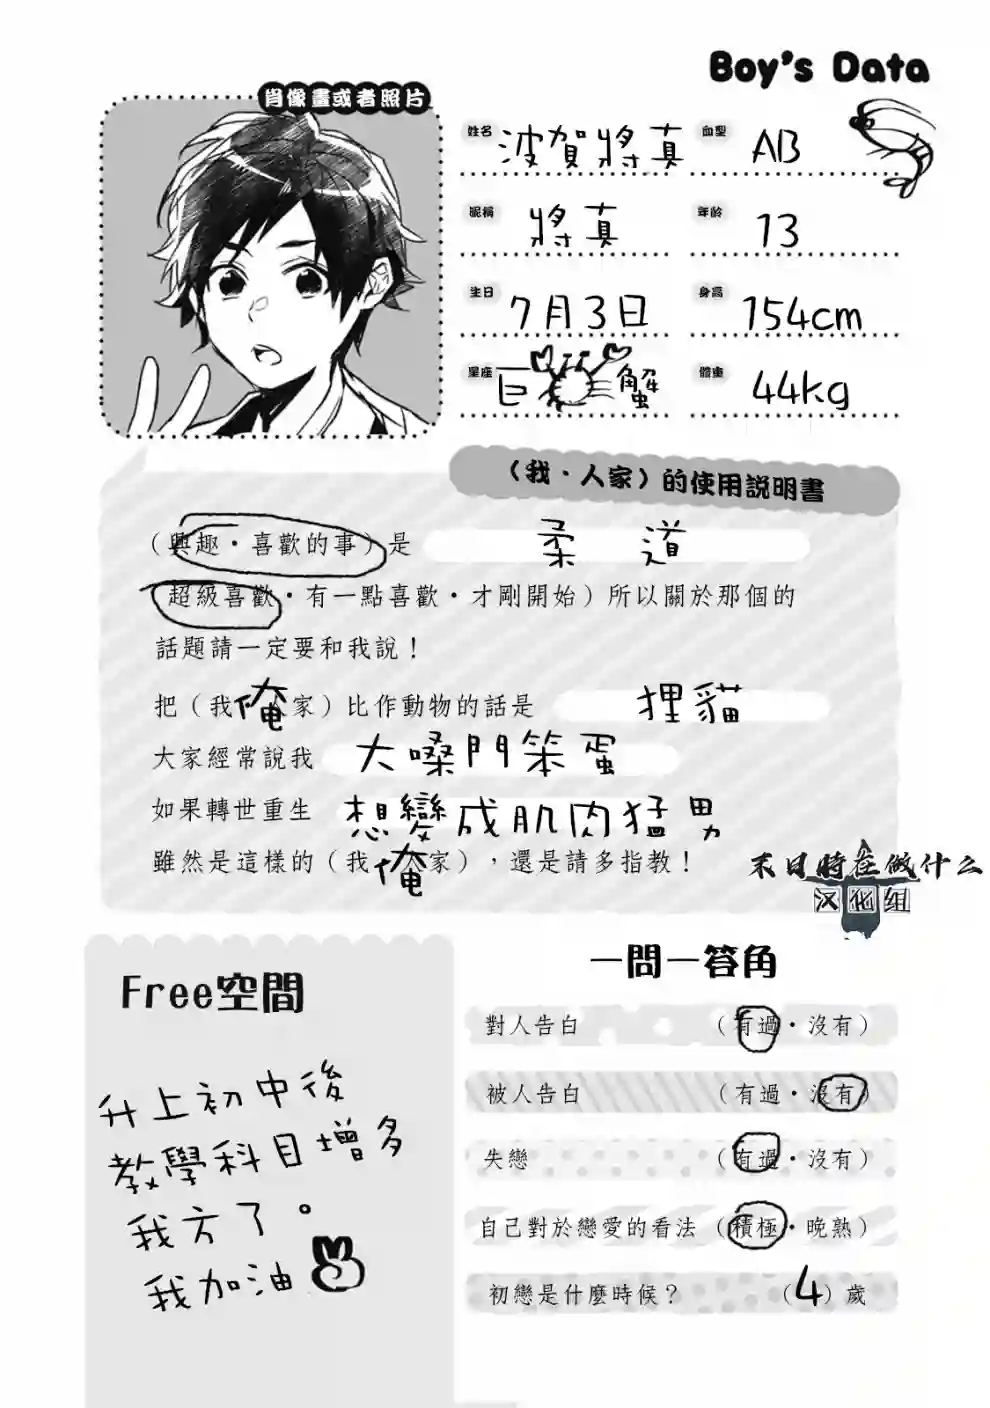 Boy's Data
肖像畫或者照片
姓名 波賀將真 血型 AB
昵稱 將真 年龄 13
生日 7月3日 身高 154cm
星座 巨蟹 體重 44kg
（我・人家）的使用説明書
（興趣・喜歡的事）是 柔道
超級喜歡・有一點喜歡・才剛開始）所以關於那個的
話題請一定要和我說！
把（我 俺 人家）比作動物的話是 狸貓
大家經常說我 大嗓門笨蛋
如果轉世重生 想變成肌肉猛男
雖然是這樣的（我 俺 人家），還是請多指教！
末日時在做什么
汉化组
Free空間
升上初中後
教學科目增多
我方了。
我加油
一問一答角
對人告白 （有過・沒有）
被人告白 （有過・沒有）
失戀 （有過・沒有）
自己對於戀愛的看法（積極・晚熟）
初戀是什麼時候？ （4）歲